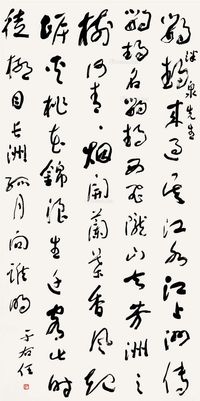 泉先生
鸚鵡來過吳江水江上洲傳
鸚鵡名鸚鵡西飛隴山去芳洲之
樹何青〻煙開蘭葉香風起
岸夾桃花錦浪生遷客此時
徒極目長洲孤月向誰明
于右任